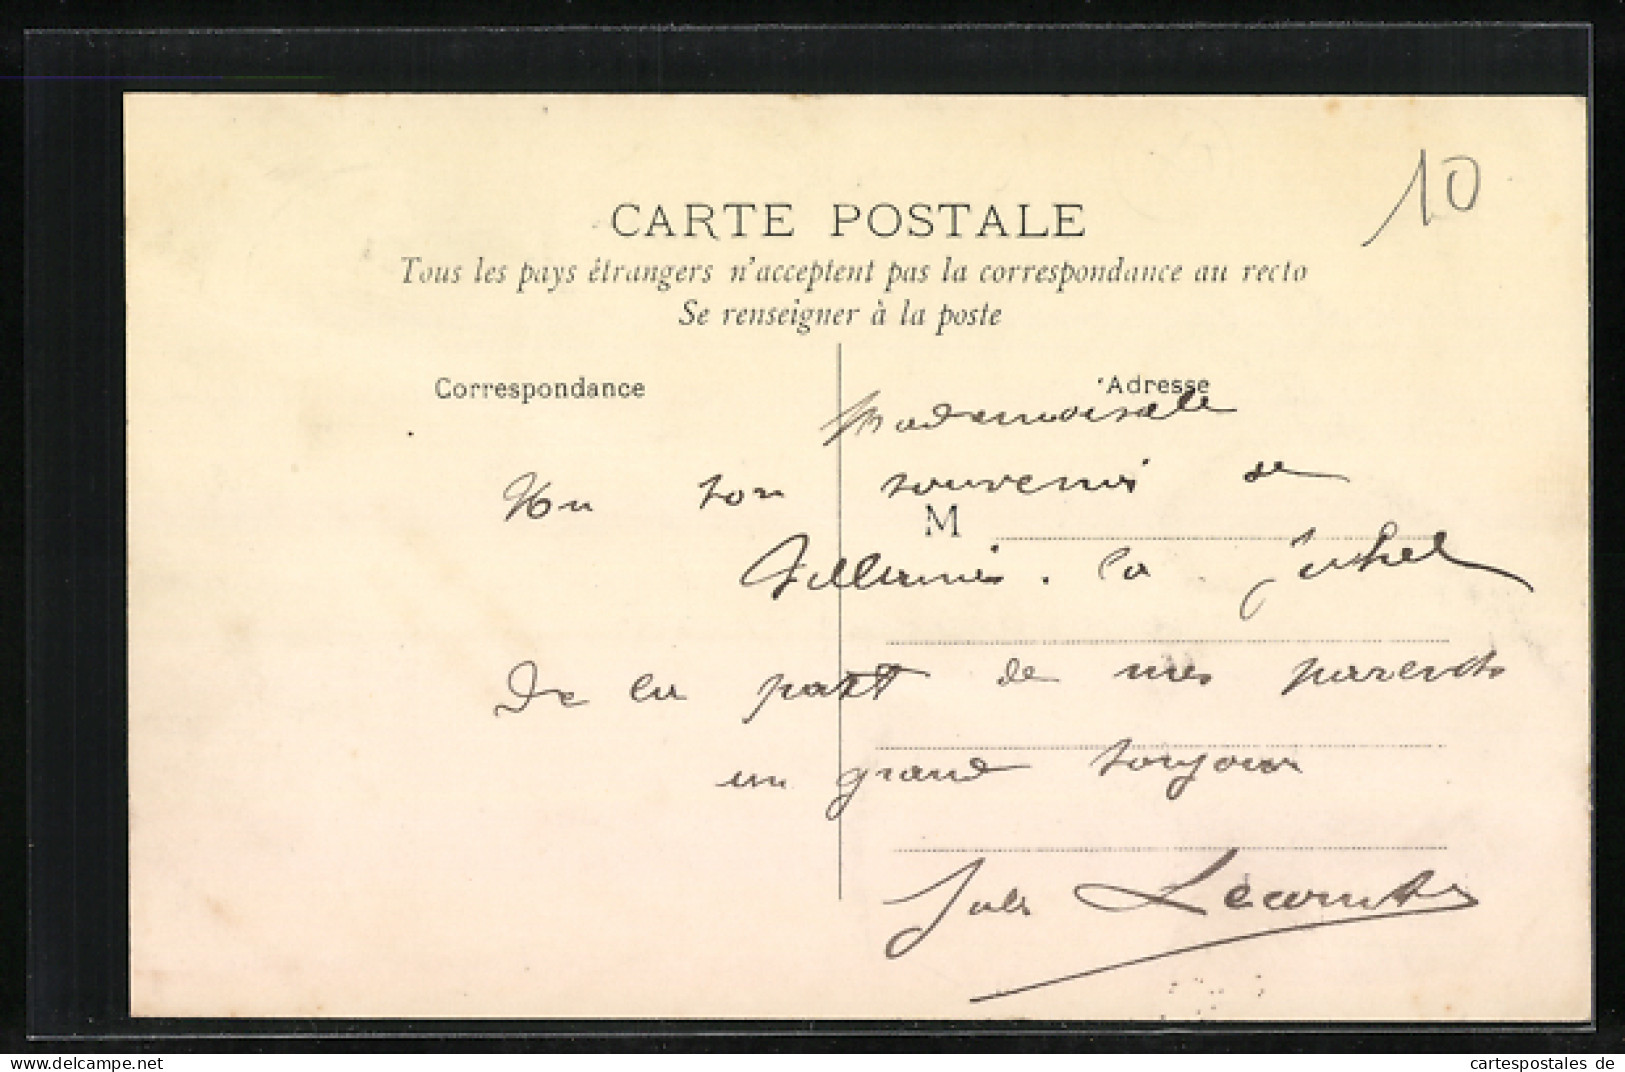 10
CARTE POSTALE
Tous les pays étrangers n'acceptent pas la correspondance au recto
Se renseigner à la poste
Correspondance
Adresse
Mademoiselle
Un bon souvenir de
M
Villaines. la . Juhel
De la part de mes parents
un grand bonjour
Jules Lecomte
www.delcampe.net
cartespostales de